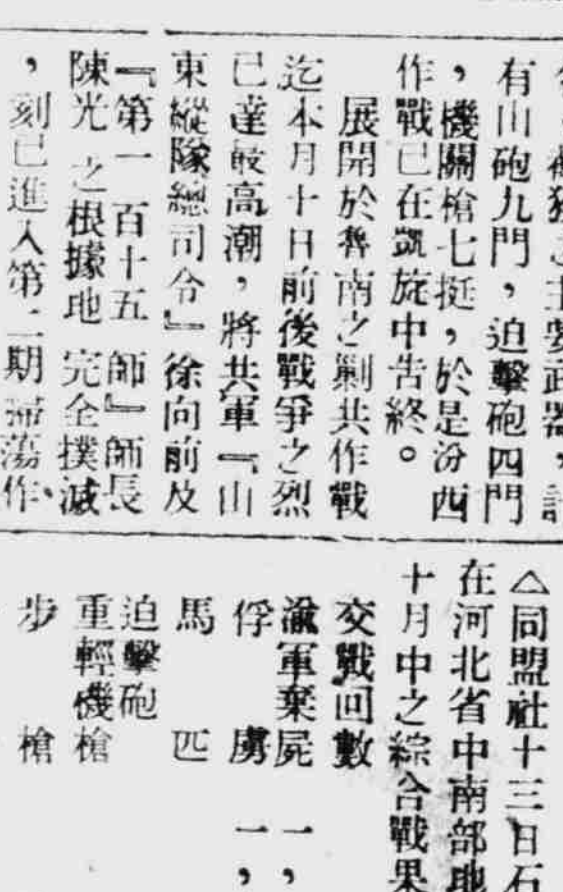 主要武器，計
有山砲九門，迫擊砲四門
，機關槍七挺，於是汾西
作戰已在凱旋中告終。
展開於魯南之剿共作戰
迄本月十日前後戰爭之烈
已達最高潮，將共軍『山
東縱隊總司令』徐向前及
『第一百十五師』師長
陳光之根據地完全撲滅
，刻已進入第二期掃蕩作
△同盟社十三日石
在河北省中南部地
十月中之綜合戰果
交戰回數
渝軍棄屍 一，
俘虜 一，
馬匹
迫擊砲
重輕機槍
步槍